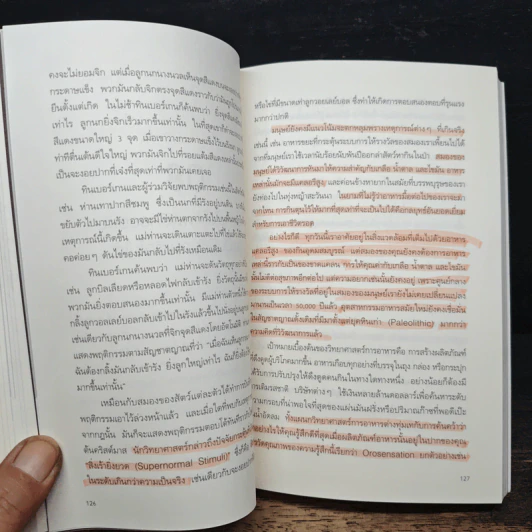 คงจะไม่ยอมจิก แต่เมื่อลูกนกนางนวลเห็นจุดสีแดงบน
กระดาษแข็ง พวกมันกลับจิกตรงจุดสีแดงราวกับว่า
ยืนตั้งแต่เกิด ในไม่ช้าทินเบอร์เกนก็ค้นพบว่า ยิ่งจุด
เท่าไร ลูกนกยิ่งจิกเร็วมากขึ้นเท่านั้น ในที่สุดเขา
สีแดงขนาดใหญ่ 3 จุด เมื่อเขาวางกระดาษแข็งไว้
ท่าทีตื่นเต้นดีใจใหญ่ พวกมันจิกไปที่รอยแต้มสีแดง
เป็นจะงอยปากที่เจ๋งที่สุดเท่าที่พวกมันเคยเจอ
ทินเบอร์เกนและผู้ร่วมวิจัยพบพฤติกรรมเช่นนี้ใน
เช่น ห่านเทาปากสีชมพู ซึ่งเป็นนกที่มีรังอยู่บนดิน
ขยับตัวไปมาบนรัง อาจจะมีไข่ห่านตกจากรังไปบนพื้น
เหตุการณ์นี้เกิดขึ้น แม่ห่านจะเดินเตาะแตะไปที่ไข่
คอค่อยๆ ดันไข่ของมันกลับไปที่รังเหมือนเดิม
ทินเบอร์เกนค้นพบว่า แม่ห่านจะดันวัตถุทุกอย่าง
เช่น ลูกบิลเลียดหรือหลอดไฟกลับเข้ารัง ยิ่งวัตถุ
พวกมันยิ่งตอบสนองมากขึ้นเท่านั้น มีแม่ห่านตัวหนึ่ง
กลิ้งลูกวอลเลย์บอลกลับเข้าไปในรังแล้วขึ้นไปนั่ง
เช่นเดียวกับลูกนกนางนวลที่จิกจุดสีแดงโดยอัตโนมัติ
แสดงพฤติกรรมตามสัญชาตญาณที่ว่า "เมื่อฉันเห็นลูก
ฉันต้องกลิ้งมันกลับเข้ารัง ยิ่งลูกใหญ่เท่าไร ฉันก็ยิ่ง
มากขึ้นเท่านั้น"
เหมือนกับสมองของสัตว์แต่ละตัวได้ทำการ
พฤติกรรมเอาไว้ล่วงหน้าแล้ว และเมื่อใดที่พบกับ
จากกฎนั้น มันก็จะแสดงพฤติกรรมตอบโต้ทันที
ต้นคริสต์มาส นักวิทยาศาสตร์กล่าวถึงปัจจัยกระตุ้น
"สิ่งเร้ายิ่งยวด (Supernormal Stimuli)" ซึ่งก็คือ
ในระดับเกินกว่าความเป็นจริง เช่นเดียวกับจะงอย
126
หรือไข่ที่มีขนาดเท่าลูกวอลเลย์บอล ซึ่งทำให้เกิดการตอบสนองตอบที่รุนแรง
มากกว่าปกติ
มนุษย์ยังคงมีแนวโน้มจะตกหลุมพรางเหตุการณ์ต่างๆ ที่เกินจริง
เช่นนี้ เช่น อาหารขยะที่กระตุ้นระบบการให้รางวัลของสมองเราตั้งไปได้
จากที่มนุษย์เราใช้เวลานับร้อยนับพันปีออกล่าสัตว์หากินในป่า สมองของ
มนุษย์ได้วิวัฒนาการมาให้ความสำคัญกับเกลือ น้ำตาล และไขมัน อาหาร
เหล่านั้นมักจะมีแคลอรีสูง และค่อนข้างหายากในสมัยที่บรรพบุรุษของเรา
ยังท่องไปในทุ่งหญ้าสะวันนา ในยามที่ไม่รู้ว่าอาหารมื้อต่อไปของเราจะมา
จากไหน การกินตุนไว้ให้มากที่สุดเท่าที่จะเป็นไปได้คือกลยุทธ์อันยอดเยี่ยม
สำหรับการเอาชีวิตรอด
อย่างไรก็ดี ทุกวันนี้เราอาศัยอยู่ในสิ่งแวดล้อมที่เต็มไปด้วยอาหาร
แคลอรีสูง ของกินอุดมสมบูรณ์ แต่สมองของคุณยังคงต้องการอาหาร
เหล่านี้ราวกับเป็นของขาดแคลน การให้คุณค่ากับเกลือ น้ำตาล และไขมัน
นั้นไม่ดีต่อสุขภาพอีกต่อไป แต่ความอยากเช่นนั้นยังคงอยู่ เพราะศูนย์กลาง
ของระบบการให้รางวัลที่อยู่ในสมองของมนุษย์เรายังไม่เคยเปลี่ยนแปลง
มานานเป็นเวลา 50,000 ปีแล้ว อุตสาหกรรมอาหารสมัยใหม่ยังคงเชื่อมั่น
ในสัญชาตญาณดั้งเดิมที่มีมาตั้งแต่ยุคหินเก่า (Paleolithic) มากกว่า
ความคิดที่วิวัฒนาการแล้ว
เป้าหมายเบื้องต้นของวิทยาศาสตร์การอาหารคือ การสร้างผลิตภัณฑ์
ที่ดึงดูดผู้บริโภคมากขึ้น อาหารเกือบทุกอย่างที่บรรจุในถุง กล่อง หรือกระปุก
ได้รับการปรับปรุงให้ดึงดูดคนกินในทางใดทางหนึ่ง อย่างน้อยก็ต้องมี
การเติมรสชาติ บริษัทต่างๆ ใช้เงินหลายล้านดอลลาร์เพื่อค้นหาระดับ
ความกรอบที่น่าพอใจที่สุดของแผ่นมันฝรั่ง หรือปริมาณก๊าซที่พอดีเป๊ะ
ในน้ำอัดลม ทั้งแผนกวิทยาศาสตร์การอาหารต่างทุ่มเทกับการค้นคว้าว่า
อย่างไรให้คุณรู้สึกดีที่สุดเมื่อผลิตภัณฑ์อาหารนั้นอยู่ในปากของคุณ
วัดคุณภาพของความรู้สึกนี้เรียกว่า Orosensation ยกตัวอย่างเช่น
127